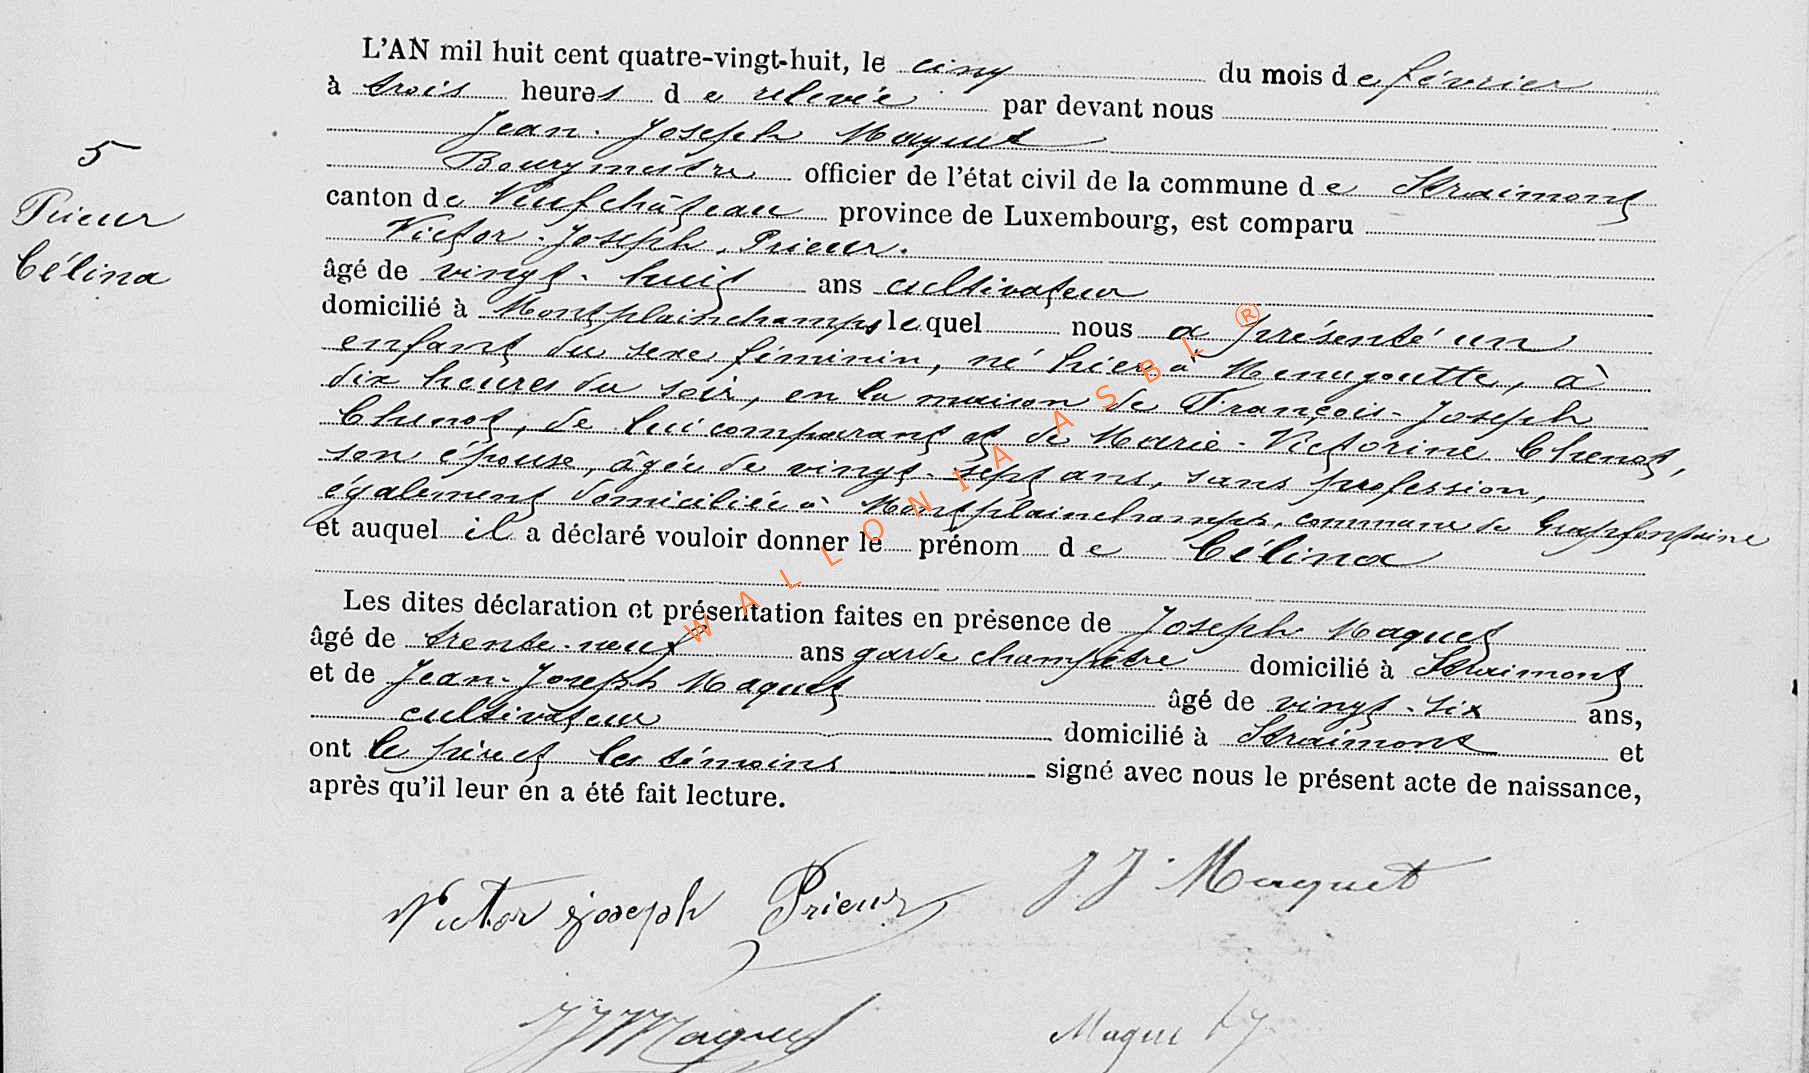 L'AN mil huit cent quatre-vingt-huit, le cinq du mois de février
à trois heures de relevée par devant nous
Jean-Joseph Maquet
Bourgmestre officier de l'état civil de la commune de Straimont
canton de Neufchâteau province de Luxembourg, est comparu
Victor-Joseph Prieur.
âgé de vingt-huit ans cultivateur
domicilié à Montplainchamps lequel nous a présenté un
enfant du sexe féminin, né hier à Menugoutte, à
dix heures du soir, en la maison de François-Joseph
Chenot, de lui comparant et de Marie-Victorine Chenot,
son épouse, âgée de vingt-sept ans, sans profession,
également domiciliée à Montplainchamps, commune de Grapfontaine
et auquel il a déclaré vouloir donner le prénom de Célina
Les dites déclaration et présentation faites en présence de Joseph Maquet
âgé de trente-neuf ans garde champêtre domicilié à Straimont
et de Jean-Joseph Maquet âgé de vingt-six ans,
cultivateur domicilié à Straimont et
ont le père et les témoins signé avec nous le présent acte de naissance,
après qu'il leur en a été fait lecture.
5
Prieur
Célina
Victor joseph Prieur J J Maquet
J J Maquet Maquet J
WALLONIA ASBL ®